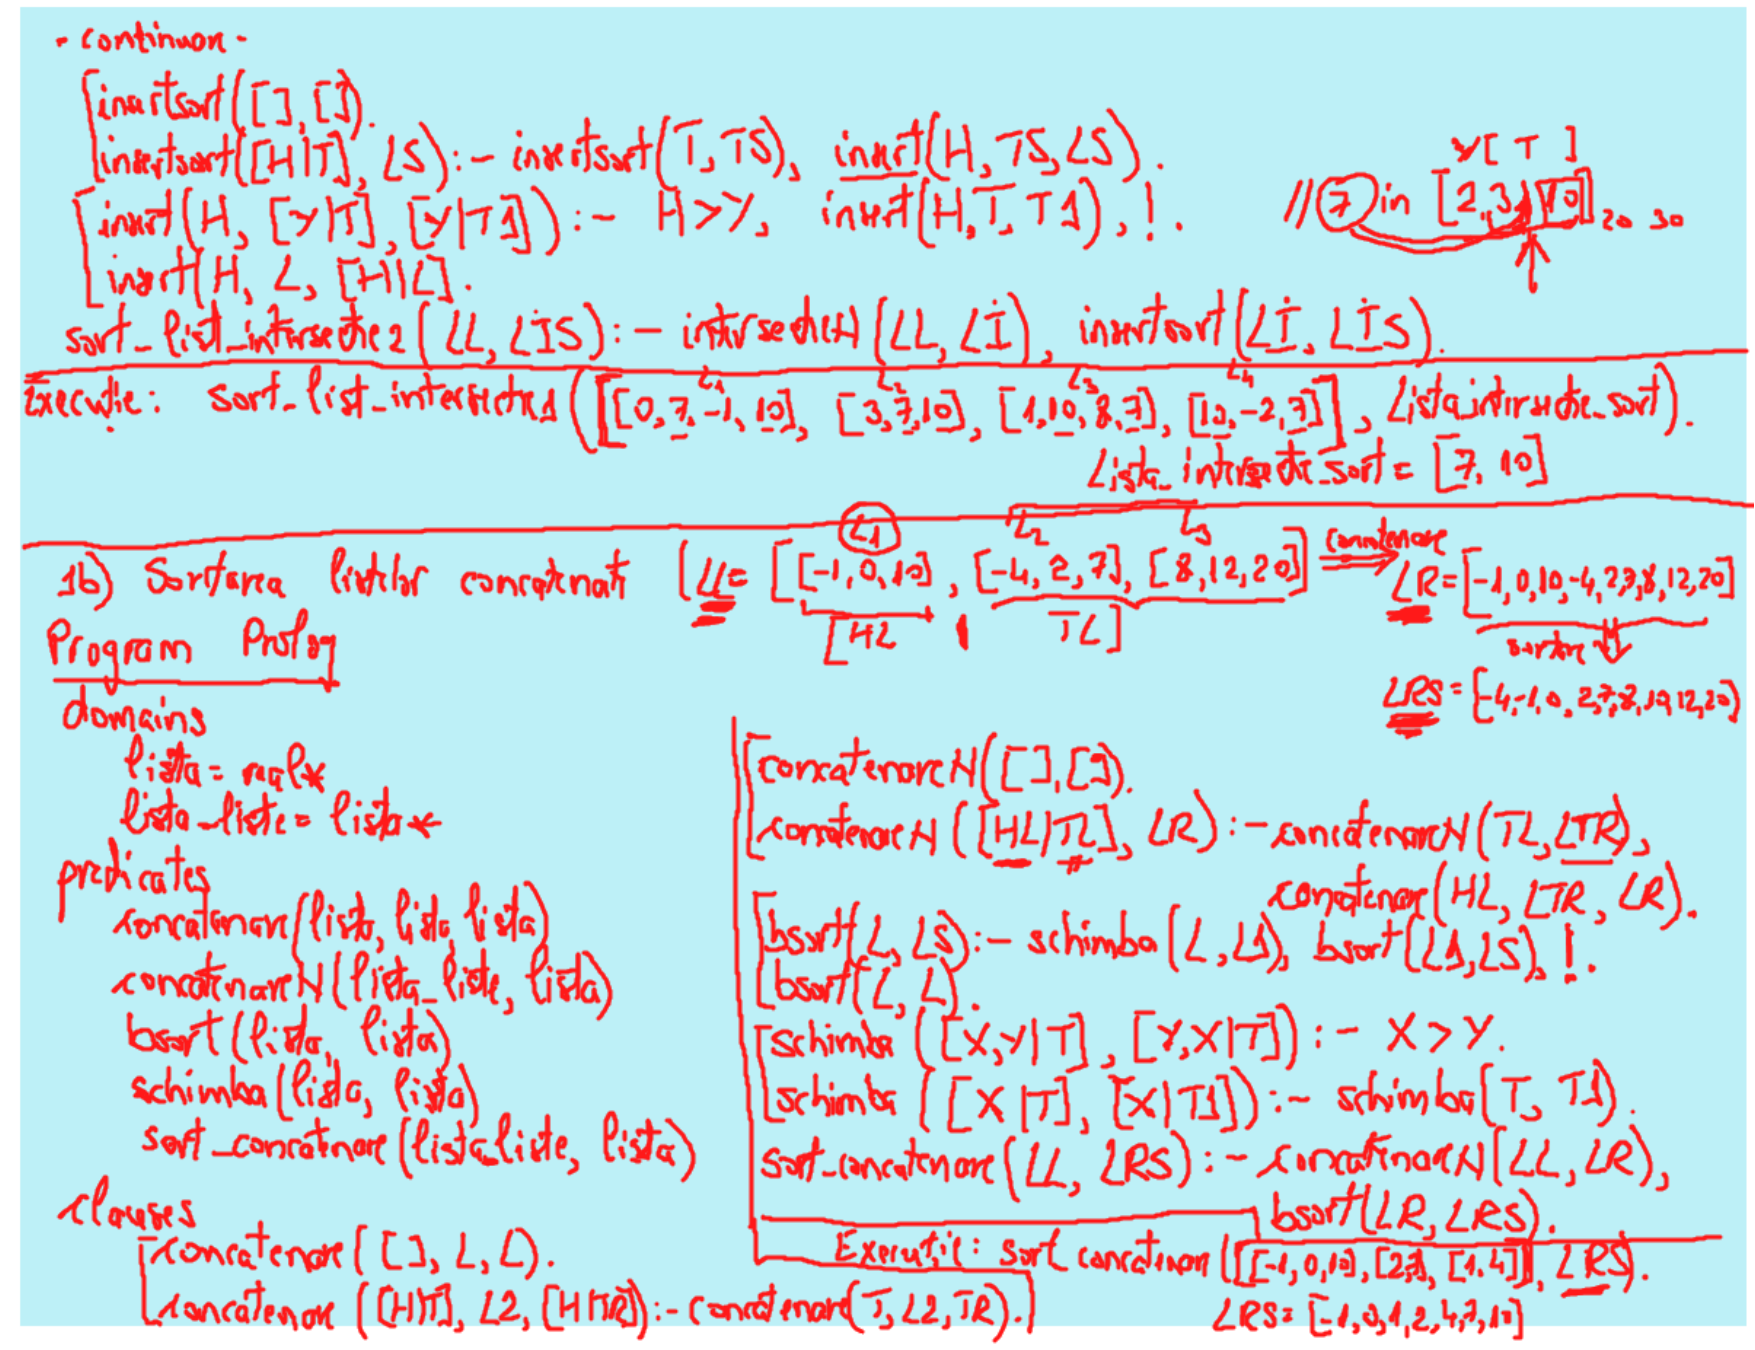 - continuare -
insertsort([], []).
insertsort([H|T], LS):- insertsort(T, TS), insert(H, TS, LS).
insert(H, [Y|T], [Y|T1]):- H>Y, insert(H, T, T1), !.
insert(H, L, [H|L].
Y[ T ]
// 7 in [2,3, 10] 20 30
sort_list_intersectie2(LL, LIS):- intersectieN(LL, LI), insertsort(LI, LIS).
L1 L2 L3 L4
Execuție: sort_list_intersectie1([[0,7,-1,10], [3,7,10], [1,10,8,7], [10,-2,7]], Lista_intersectie_sort).
Lista_intersectie_sort = [7, 10]
L1 L2 L3
1b) Sortarea listelor concatenate (LL= [[-1,0,10], [-4,2,7], [8,12,20]] concatenare
LR=[-1,0,10,-4,2,7,8,12,20]
[HL | TL]
sortare
LRS=[-4,-1,0,2,7,8,10,12,20)
Program Prolog
domains
lista=real*
lista_liste= lista*
predicates
concatenare(lista, lista, lista)
concatenareN(lista_liste, lista)
bsort(lista, lista)
schimba(lista, lista)
sort_concatenare(lista_liste, lista)
clauses
concatenare([], L, L).
concatenare([H|T], L2, [H|TR]):- concatenare(T, L2, TR).
concatenareN([], []).
concatenareN([HL|TL], LR):-concatenareN(TL, LTR),
concatenare(HL, LTR, LR).
bsort(L, LS):- schimba(L, L1), bsort(L1, LS), !.
bsort(L, L).
schimba([X,Y|T], [Y,X|T]):- X>Y.
schimba([X|T], [X|T1]):- schimba(T, T1).
sort_concatenare(LL, LRS):- concatenareN(LL, LR),
bsort(LR, LRS).
Execuție: sort concatenare([[-1,0,10], [2,7], [1,4]], LRS).
LRS=[-1,0,1,2,4,7,10]